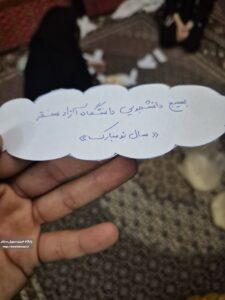 بسیج دانشجویی دانشگاه آزاد سنقر
«سال نو مبارک»